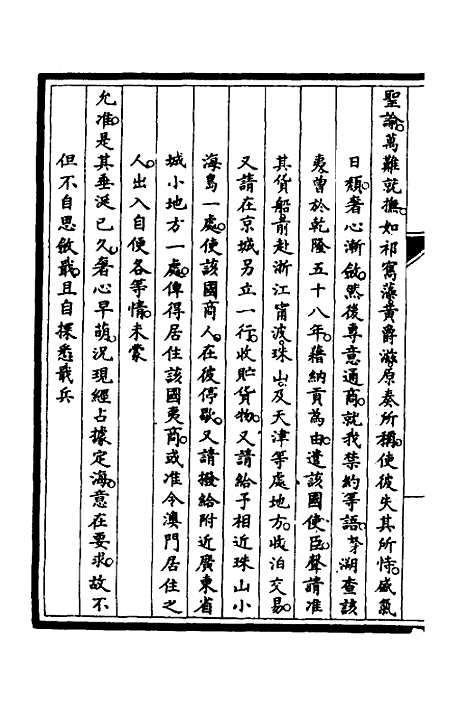 聖諭。萬難就撫。如祁寯藻黃爵滋原奏所稱。使彼失其所恃。威氣
日頹。奢心漸斂。然後專意通商。就我禁約等語。竊溯查該
夷曾於乾隆五十八年。藉納貢為由。遣該國使臣。聲請准
其貨船前赴浙江甯波。珠山。及天津等處地方。收泊交易。
又請在京城另立一行。收貯貨物。又請給予相近珠山小
海島一處。使該國商人。在彼停歇。又請撥給附近廣東省
城小地方一處。俾得居住該國夷商。或准令澳門居住之
人。出入自便各等情。未蒙
允准。是其垂涎已久。奢心早萌。況現經占據定海。意在要求。故不
但不自思斂戢。且自探悉戢兵